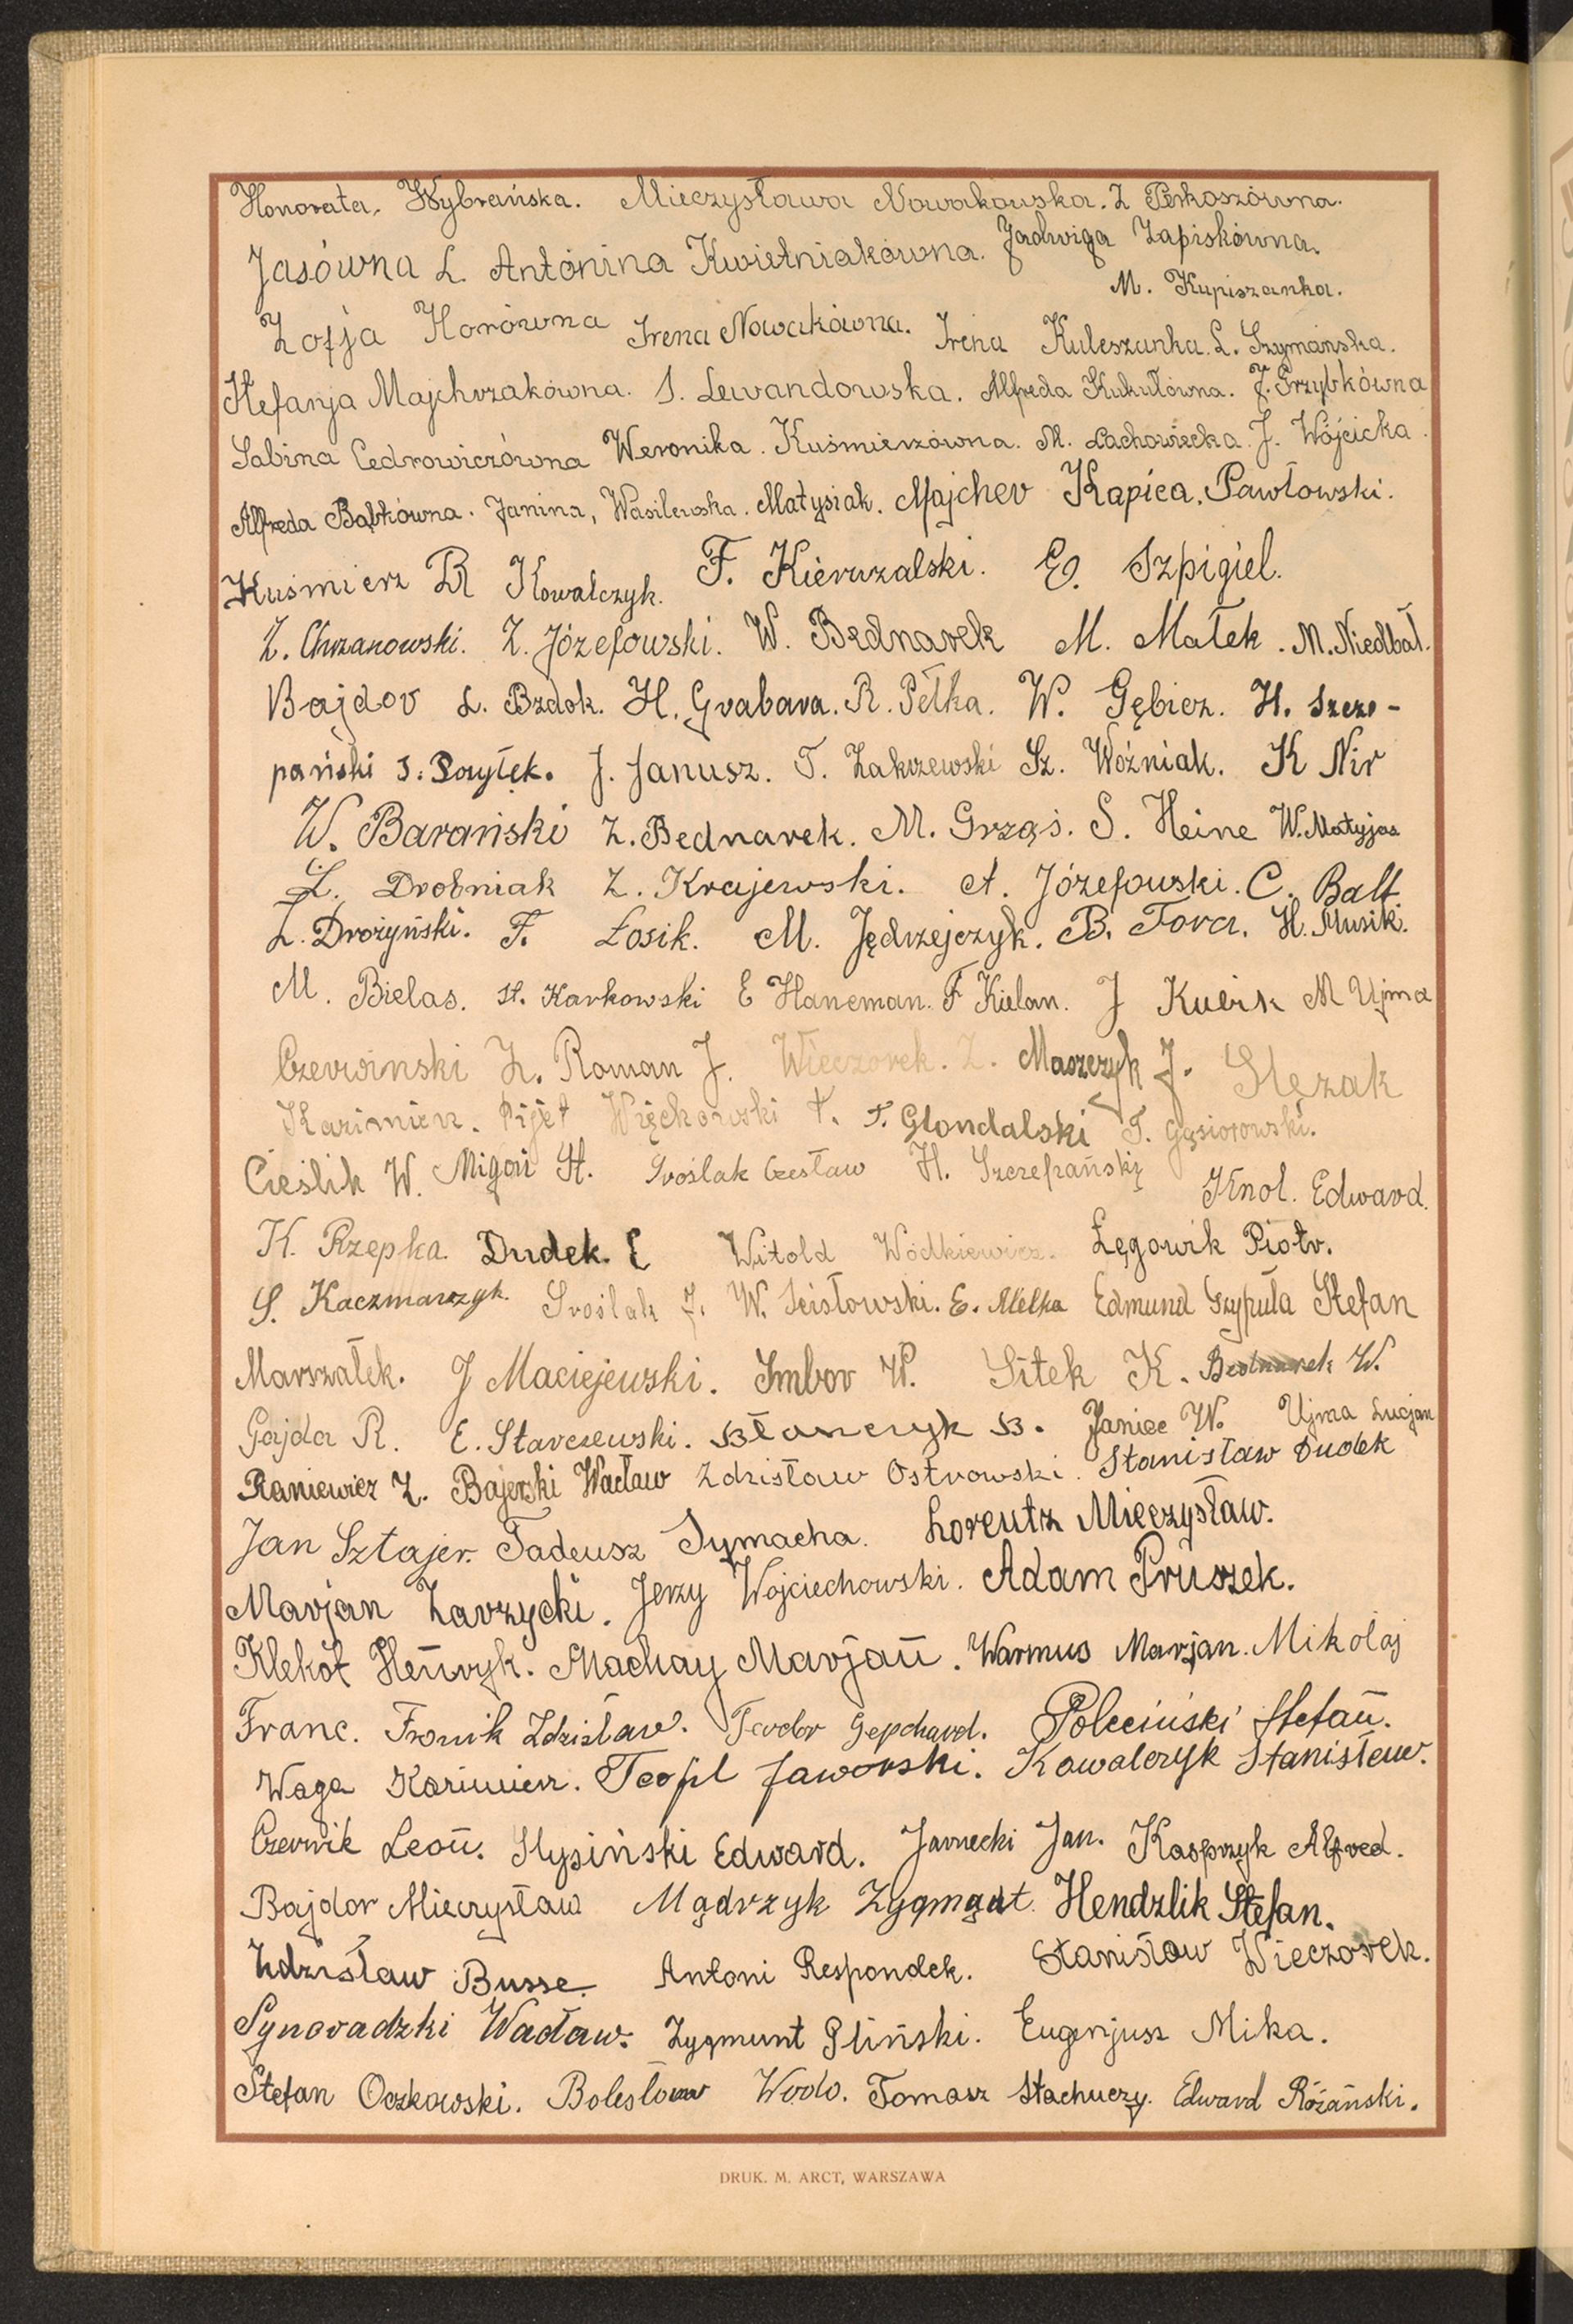 Honorata. Wybrańska. Mieczysława Nowakowska. Z Perkoszówna.
Jasówna L. Antonina Kwietniakówna. Jadwiga Zapiskówna.
M. Kupiszanka.
Zofja Horówna Irena Nowakówna. Irena Kuleszanka. L. Szymańska.
Stefanja Majchrzakówna. S. Lewandowska. Alfreda Kukułówna. J. Grzybkówna
Sabina Cedrowiczówna Weronika. Kuśmierzówna. M. Lachowiecka. J. Wójcicka.
Alfreda Bąbkówna. Janina, Wasilewska. Matysiak. Majcher Kapica. Pawłowski.
Kuśmierz R Kowalczyk. F. Kierwzalski. E. Szpigiel.
Z. Chrzanowski. Z. Józefowski. W. Bednarek M. Małek. M. Niedbał.
Bajdor L. Bzdok. H. Grabara. R. Pełka. W. Gębicz. H. Szcze-
pański S. Poryłek. J. Janusz. T. Zakrzewski Sz. Woźniak. K Nir
W. Barański Z. Bednarek. M. Grząś. S. Heine W. Matyjas
Ł. Drobniak Z. Krajewski. A. Józefowski. C. Balt
Z. Drożyński. F. Łosik. M. Jędrzejczyk. B. Tora. H. Musik.
M. Bielas. St. Karkowski E Haneman. F Kielan. J Kubik M Ujma
Czerwinski Z. Roman J. Wieczorek. Z. Maszczyk J. Ślęzak
Kazimierz. Pijet Więckowski T. T. Glondalski T. Gąsiorowski.
Cieślik W. Migoń St. Sroślak Czesław H. Szczepański
Knol. Edward.
K. Rzepka. Dudek. E Witold Wódkiewicz. Łęgowik Piotr.
S. Kaczmarzyk. Sroślak J. W. Ścisłowski. E. Melka Edmund Szypuła Stefan
Marszałek. J Maciejewski. Imbor W. Sitek K. Bednarek W.
Gajda R. E. Starczewski. Błaszczyk B. Janiec W. Ujma Lucjan
Raniewicz Z. Bajerski Wacław Zdzisław Ostrowski. Stanisław Dudek
Jan Sztajer. Tadeusz Symacha. Lorentz Mieczysław.
Marjan Zarzycki. Jerzy Wojciechowski. Adam Pruszek.
Klekot Henryk. Machay Marjan. Warmus Marjan. Mikołaj
Franc. Fronik Zdzisław. Teodor Gepchard. Poleciński Stefan.
Waga Kazimierz. Teofil Jaworski. Kowalczyk Stanisław.
Czernik Leon. Słysiński Edward. Jarnecki Jan. Kasprzyk Alfred.
Bajdor Mieczysław Mądrzyk Zygmąut. Hendzlik Stefan.
Zdzisław Busse. Antoni Respondek. Stanisław Wieczorek.
Synoradzki Wacław. Zygmunt Gliński. Eugenjusz Mika.
Stefan Oczkowski. Bolesław Wodo. Tomasz Stachuczy. Edward Różański.
DRUK. M. ARCT, WARSZAWA